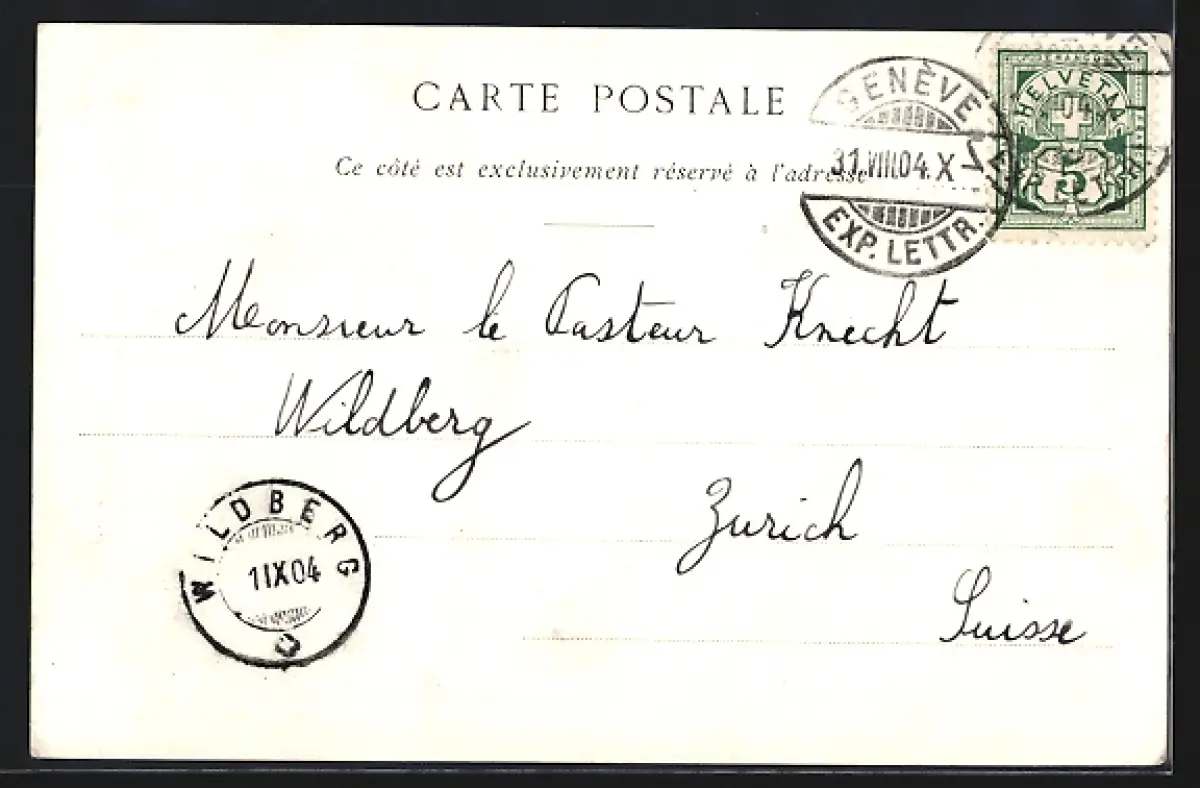 CARTE POSTALE
Ce côté est exclusivement réservé à l'adresse
GENÈVE
31.VIII.04.X
EXP. LETTR.
HELVETIA
04
5
Monsieur le Pasteur Knecht
Wildberg
Zurich
Suisse
WILDBERG
1IX04